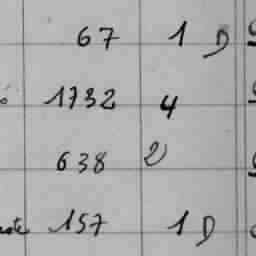 67 1 D
1732 4
638 2
157 1 D